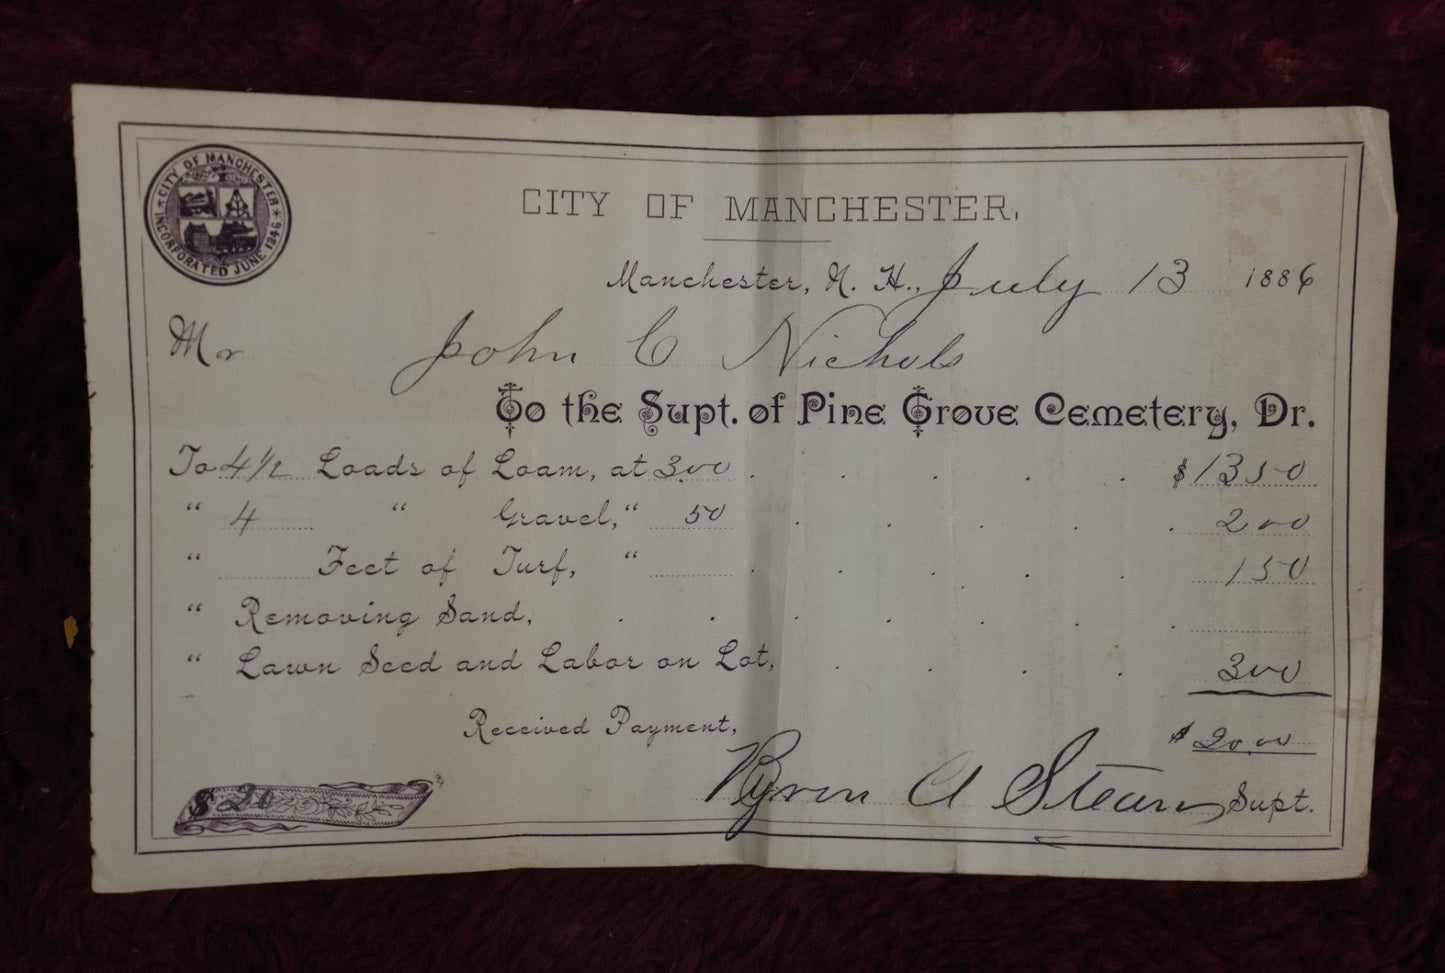 CITY OF MANCHESTER
INCORPORATED JUNE 1846
CITY OF MANCHESTER.
Manchester, N. H., July 13 1886
Mr John C Nichols
To the Supt. of Pine Grove Cemetery, Dr.
To 4 1/2 Loads of Loam, at 3.00 . . . . . $ 13 50
" 4 " Gravel, " 50 . . . . . 2 00
" Feet of Turf, " . . . . . 1 50
" Removing Sand, . . . . . . .
" Lawn Seed and Labor on Lot, . . . . 3 00
Received Payment, $ 20.00
Byron A Stearns Supt.
$ 20